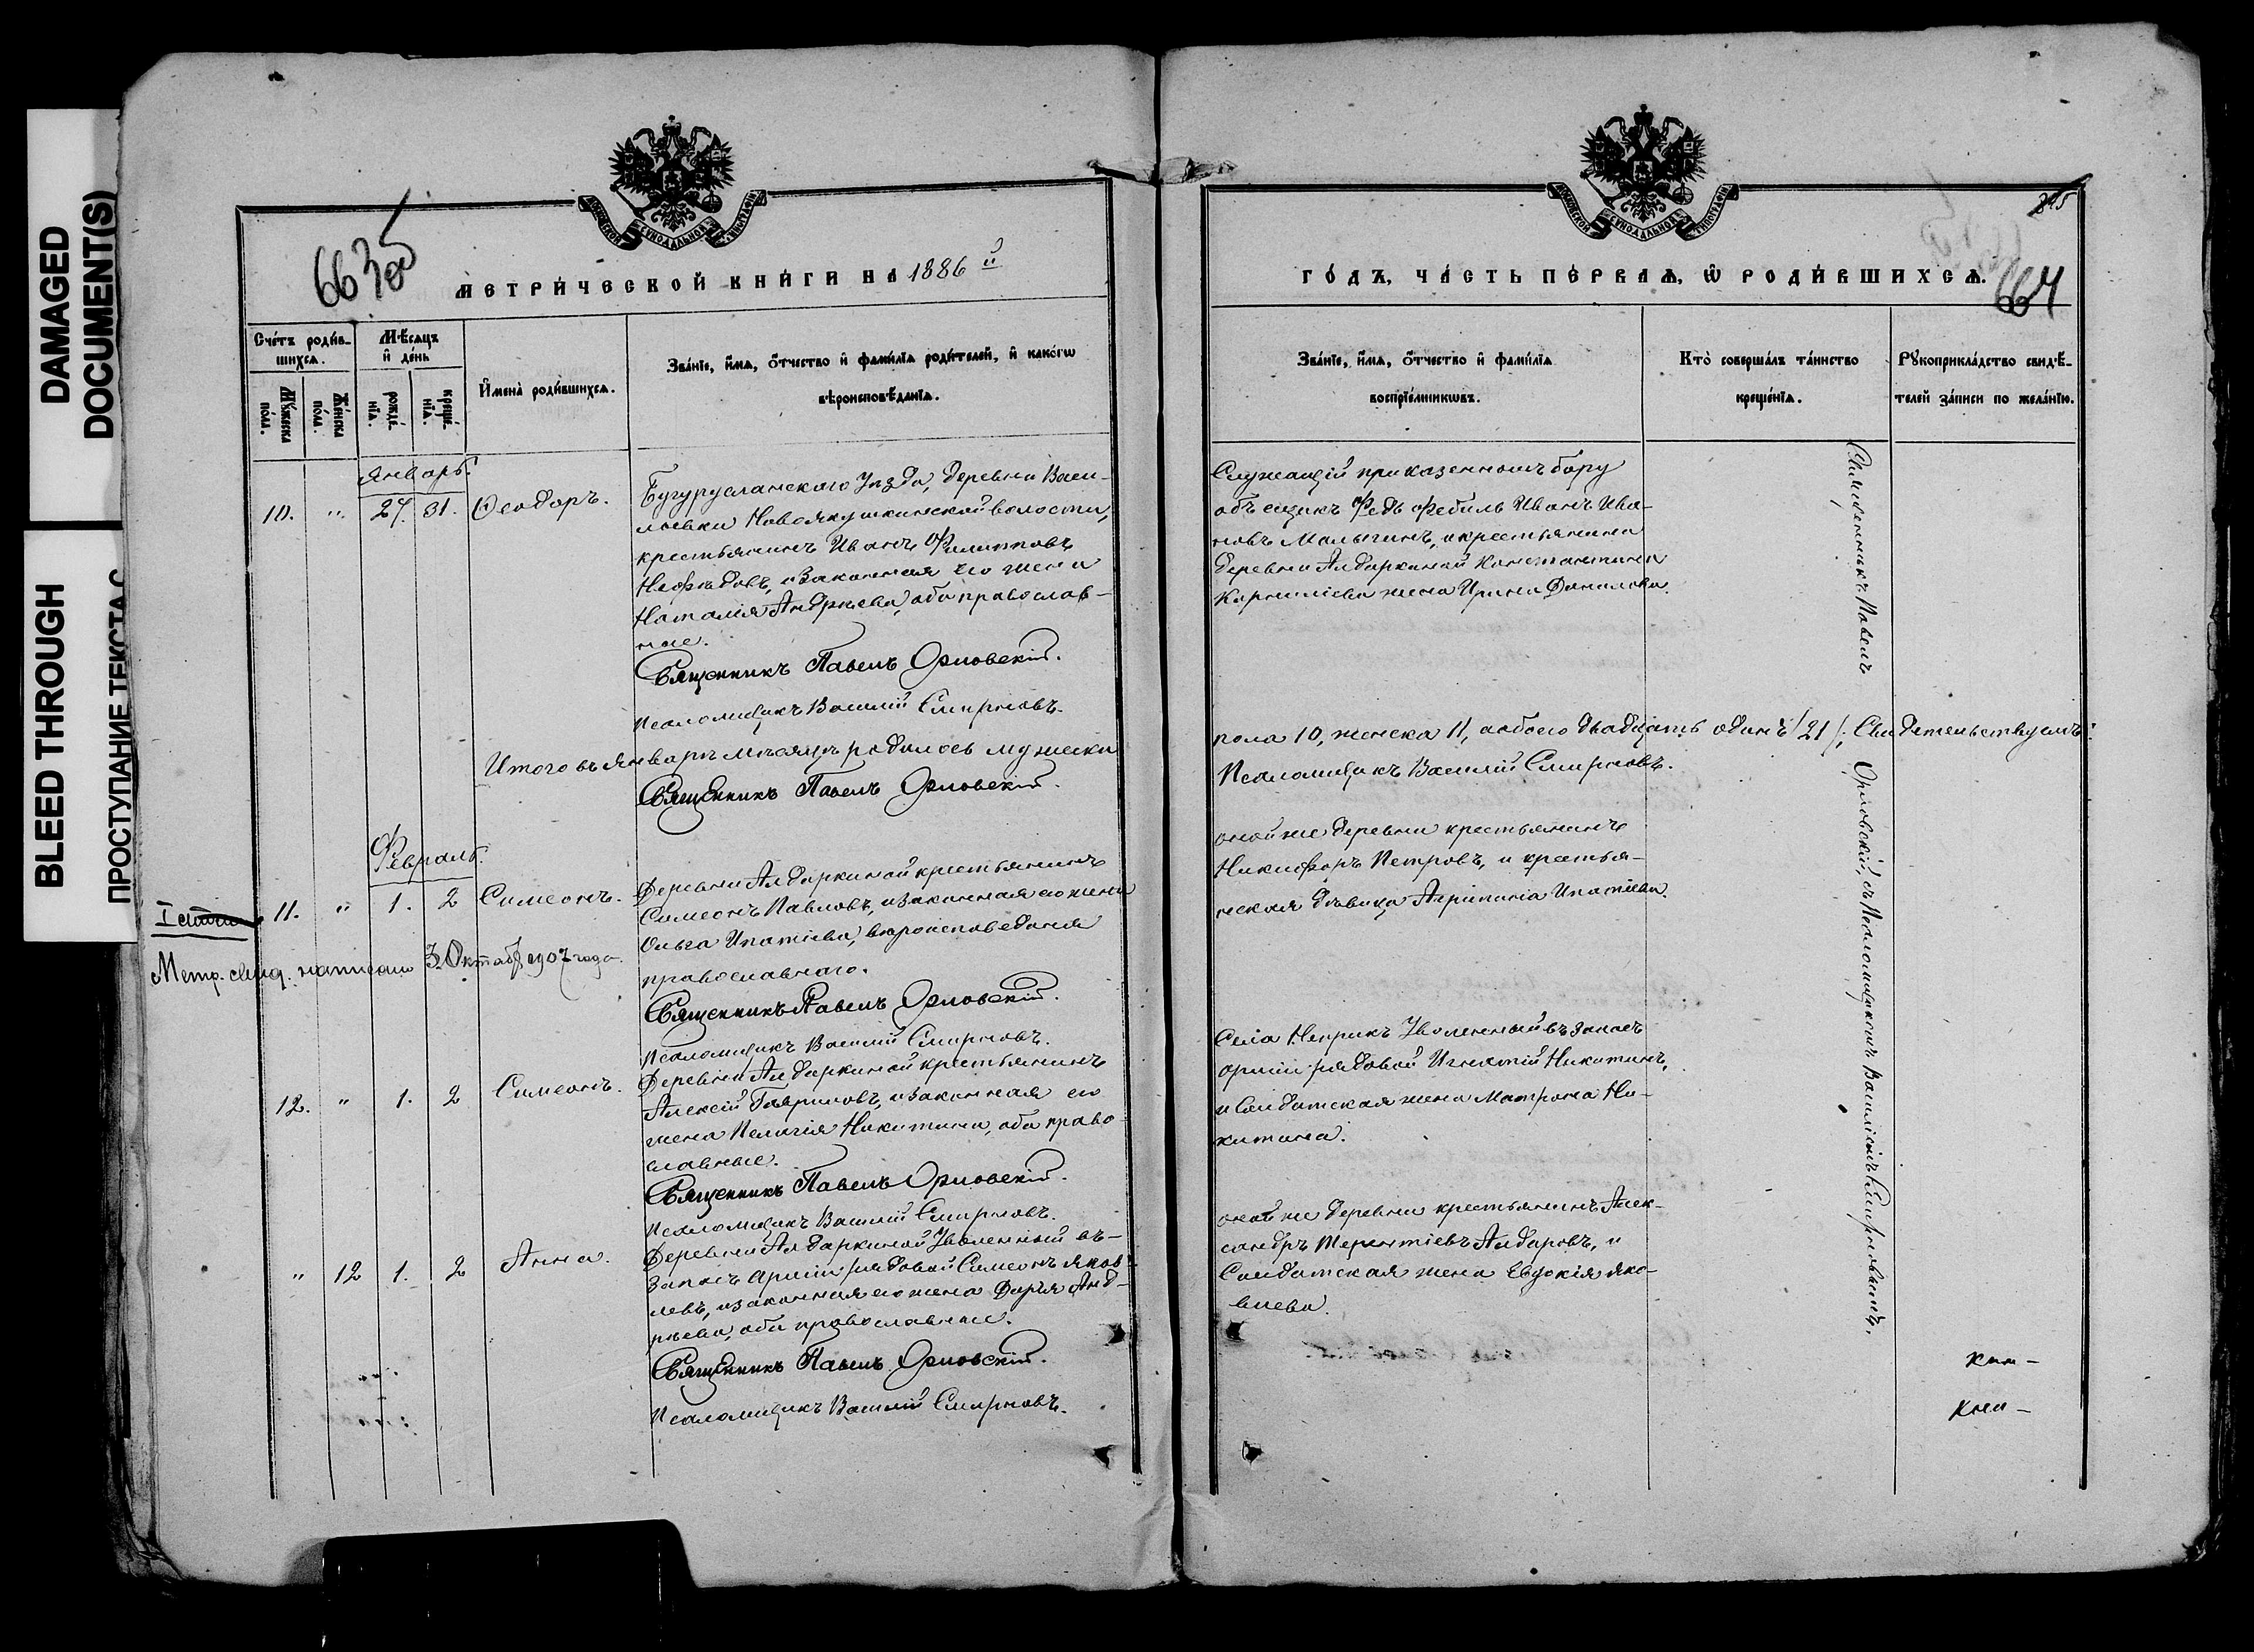 DAMAGED
DOCUMENT(S)
BLEED THROUGH
ПРОСТУПАНИЕ ТЕКСТА С
663об
МЕТРИЧЕСКОЙ КНИГИ НА 1886 й
Счетъ родив-
шихся.
Мѣсяцъ
и день
Мужеска
пола.
Женска
пола.
рожде-
нія.
креще-
нія.
Имена родившихся.
Званіе, имя, отчество и фамилія родителей, и какогѡ
вѣроисповѣданія.
Январь.
10. " 27. 31. Ѳеодоръ.
Бугурусланскаго Уѣзда, деревни Васи-
льевки Новоякушкинской волости,
крестьянинъ Иванъ Филипповъ
Нефедовъ, и законная его жена
Наталія Андреева, оба православ-
ные.
Священникъ Павелъ Орловскій.
Псаломщикъ Василій Смирновъ.
Итого въ Январѣ мѣсяцѣ родилось мужеска
Священникъ Павелъ Орловскій.
Февраль.
11. " 1. 2 Симеонъ.
Деревни Алдаркиной крестьянинъ
Симеонъ Павловъ, и законная его жена
Ольга Ипатіева, вѣроисповеданія
православнаго.
Метр. свид. написано 3 Октяб. 1907 года
Священникъ Павелъ Орловскій.
Псаломщикъ Василій Смирновъ.
12. " 1. 2 Симеонъ.
Деревни Алдаркиной крестьянинъ
Алексій Гавриловъ, и законная его
жена Пелагія Никитина, оба право-
славные.
Священникъ Павелъ Орловскій.
Псаломщикъ Василій Смирновъ.
" 12 1. 2 Анна.
Деревни Алдаркиной Уволенный въ-
запасъ арміи рядовой Симеонъ Яков-
левъ, и законная его жена Дарья Анд-
реева, оба православные.
Священникъ Павелъ Орловскій.
Псаломщикъ Василій Смирновъ.
664
ГОДЪ, ЧАСТЬ ПЕРВАЯ, Ѡ РОДИВШИХСЯ.
Званіе, имя, отчество и фамилія
воспріемникωвъ.
Кто совершалъ таинство
крещенія.
Рукоприкладство свидѣ-
телей записи по желанію.
Служащій при казенномъ бору
объещикъ Иванъ Ива-
новъ Малыгинъ, и крестьянина
деревни Алдаркиной Константина
Корнилова жена Ирина Данилова.
пола 10, женска 11, а обоего двадцать одинъ /21/, Свидетельствуемъ:
Псаломщикъ Василій Смирновъ.
оной же деревни крестьянинъ
Никифоръ Петровъ, и крестья-
нская дѣвица Агрипина Ипатіева.
Села Неприкъ Уволенный въ запасъ
арміи рядовой Игнатій Никитинъ,
и Солдатская жена Матрона Ни-
китина.
оной же деревни крестьянинъ Алек-
сандръ Терентіевъ Алдаровъ, и
Солдатская жена Евдокія Яко-
влева.
Священникъ Павелъ
Орловскій, съ Псаломщикомъ Василіемъ Смирновымъ.